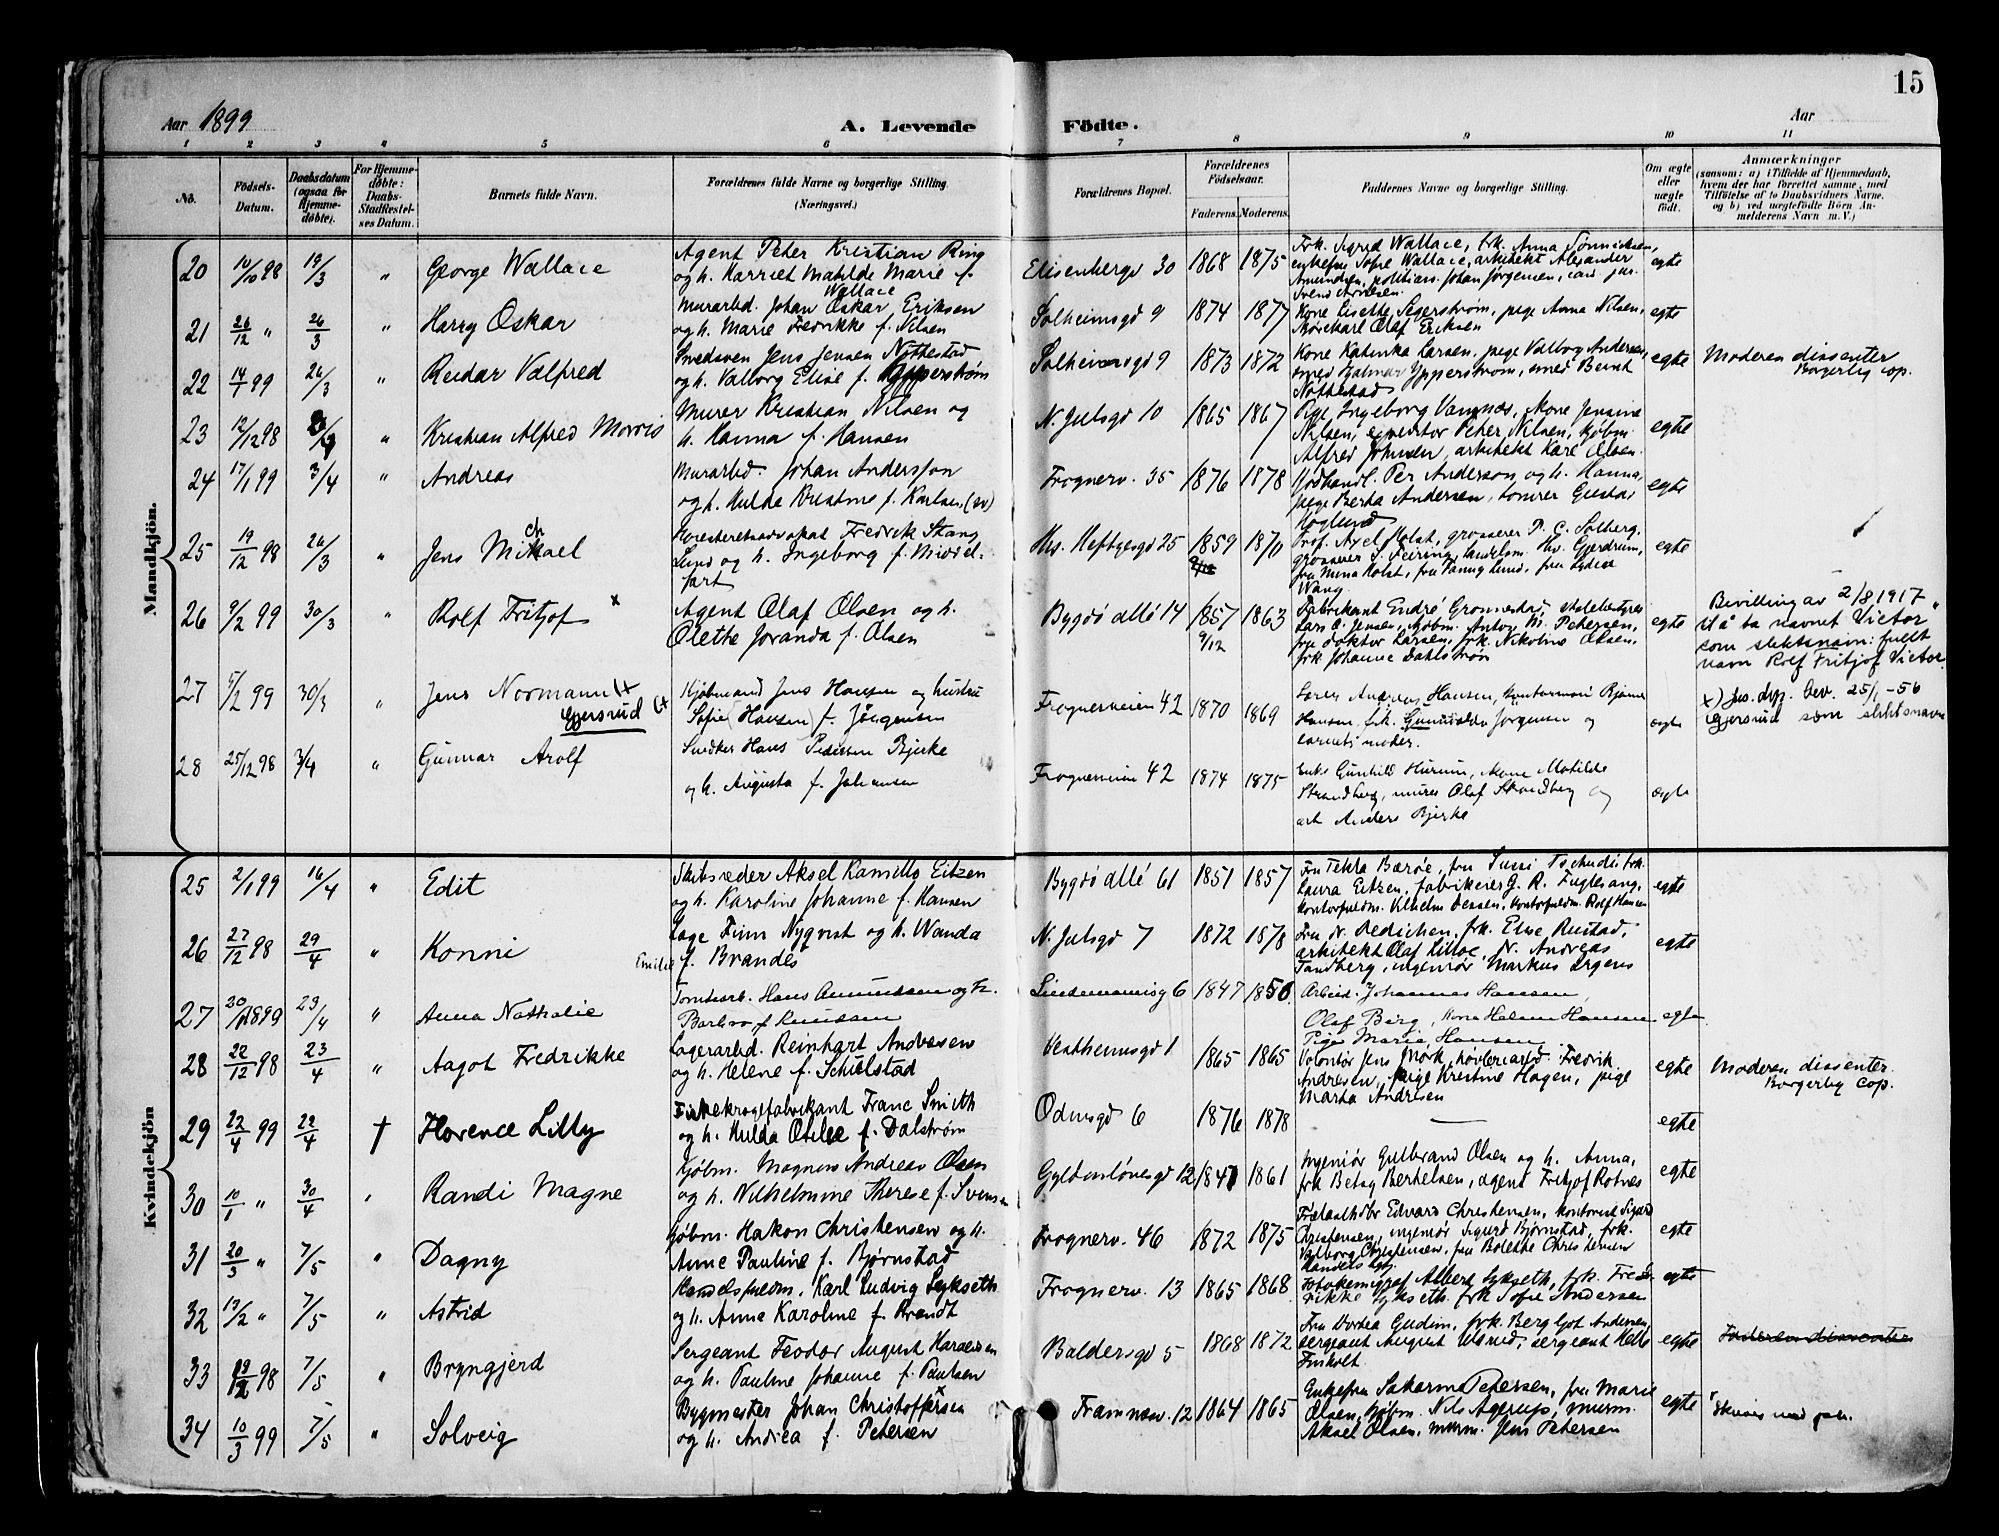 15
Aar 1899
A. Levende Födte.
Aar
1 2 3 4 5 6 7 8 9 10 11
No.
Födsels-Datum.
Daabsdatum (ogsaa for Hjemmedöbte).
For Hjemmedöbte: Daabs-Stadfæstelses Datum.
Barnets fulde Navn.
Forældrenes fulde Navne og borgerlige Stilling. (Næringsvei.)
Forældrenes Bopæl.
Forældrenes Födselsaar.
Faderens. Moderens.
Faddernes Navne og borgerlige Stilling.
Om ægte eller uægte födt.
Anmærkninger
(saasom: a) i Tilfælde af Hjemmedaab, hvem der har forrettet samme, med Tilföielse af to Daabsvidners Navne, og b) ved uægtefödte Börn Anmelderens Navn m. V.)
Mandkjön.
20 10/10 98 19/3 " George Wallace
Agent Peter Kristian Ring
og h. Harriet Matilde Marie f.
Wallace
Elisenbergv 30 1868 1875
Frk. Sigrid Wallace, frk. Anna Sønnichsen,
enkefru Sofie Wallace, arkitekt Alexander
Amundsen, politiass. Johan Jørgensen, cand jur.
egte
21 26/12 " 26/3 " Harry Oskar
Murarbd. Johan Oskar Eriksen
og h. Marie Fredrikke f. Nilsen
Solheimsgd 9 1874 1877
Kone Lisette Segerstrøm, pige Anna Nilsen,
Kjørekarl Olaf Eriksen
egte
22 14/1 99 26/3 " Reidar Valfred
Smedsven Jens Jensen Nøttestad
og h. Valborg Elise f. Ypperstrøm
Solheimsgd 9 1873 1872
Kone Katinka Larsen, pige Valborg Andersen,
smed Hjalmar Ypperstrøm, smed Bernt
Nøttestad
egte
Moderen dissenter
Borgerlig cop.
23 12/12 98 3/4 " Kristian Alfred Morris
Murer Kristian Nilsen og
h. Hanna f. Hansen
N. Julsgd 10 1865 1867
Pige Ingeborg Vamnæs, Kone Jensine
Nilsen, expeditør Peter Nilsen, kjøbm.
Alfred Johnsen, arkitekt Kare Olsen
egte
24 17/1 99 3/4 " Andreas
Murarbd. Johan Andersson
og h. Hulda Kristine f. Karlsen
Frognerv. 35 1876 1878
Per Anderson og h. Hanna,
pige Berta Andersen, tømrer Gustav
Høglund
egte
25 19/12 98 26/3 " Jens Michael
Høiesteretsadvokat Fredrik Stang
Lund og h. Ingeborg f. Middel-
fart
Ths. Heftyesgd 25 1859 1870
Prof. Axel Holst, grosserer P. C. Solberg,
grosserer S. Feiring, Ths. Gjerdrum,
fru Mina Holst, fru Fanny Lund, fru
Wang
egte
26 9/2 99 30/3 " Rolf Fritjof x
Agent Olaf Olsen og h.
Olette Joranda f. Olsen
Bygdø allé 14 1857 1863
9/12
Fabrikant Endré Grønnestad,
Lars O. Jensen, kjøbm. Anton M. Petersen,
fru doktor Larsen, frk. Nikoline Olsen,
frk Johanne Dahlstrøm
egte
Bevilling av 2/8 1917
til å ta navnet Victor
som slektsnavn: fuldt
navn Rolf Fritjof Victor.
27 5/2 99 30/3 " Jens Normann (x
Gjersrud (x
Kjøbmand Jens Hansen og hustru
Sofie (Hansen) f. Jörgensen
Frognerveien 42 1870 1869
Søren Andreas Hansen, kontormand Bjarne
Hansen, frk. Gunvalda Jørgensen og
barnets moder.
ægte
x) Jus. dep. bev. 25/1-56
Gjersrud som slektsnavn
28 25/12 98 3/4 " Gunnar Arolf
Snedker Hans Pedersen Bjerke
og h. Augusta f. Johansen
Frognerveien 42 1874 1875
Enke Gunhild Hurum, Kone Matilde
Strandberg, murer Olaf Strandberg og
arb Anders Bjerke
ægte
Kvindekjön
25 2/1 99 16/4 " Edit
Skibsreder Aksel Kamillo Eitzen
og h. Karoline Johanne f. Hansen
Bygdø allé 61 1851 1857
Fru Tekla Barøe, fru Sussi Tschudi, frk.
Laura Eitzen, fabrikeier G. R. Fuglesang,
kontorfuldm. Vilhelm Dessen, kontorfuldm. Rolf Hansen
egte
26 27/12 98 29/4 " Konni
Læge Finn Nyqvist og h. Wanda
Emilie f. Brandes
N. Julsgd 7 1872 1878
Fru N. Dedichen, frk. Else Rustad,
arkitekt Olaf Lilloe, N. Andreas
Tandberg, ingeniør Markus Ørgens
egte
27 20/1 1899 23/4 " Anna Nathalie
Tomtearb. Hans Amundsen og h.
Barbro f Knudsen
Lindemannsg 6 1847 1856
Arbeid. Johannes Hansen,
Olaf Berg, Kone Helene Hansen
Pige Marie Hansen
egte
28 22/12 98 23/4 " Aagot Fredrikke
Lagerarbd. Reinhart Andresen
og h. Helene f. Schulstad
Vestheimsgd 1 1865 1865
Volontør Jens Mørk, høvleriarbd. Fredrik
Andresen, pige Kristine Hagen, pige
Marta Andresen
egte
Moderen dissenter.
Borgerlig cop.
29 22/4 99 22/4 † Florence Lilly
Fiskekrogefabrikant Franc Smith
og h. Hulda Otilie f. Dalstrøm
Odinsgd 6 1876 1878
—
egte
30 10/1 " 30/4 " Randi Magne
Kjøbm. Magnus Andreas Olsen
og h. Wilhelmine Therese f. Svensen
Gyldenløvesgd 12 1841 1861
Ingeniør Gulbrand Olsen og h. Anna,
frk Betsy Berthelsen, agent Fritjof Rotnes
egte
31 20/3 " 7/5 " Dagny
Kjøbm. Hakon Christensen og h.
Anne Pauline f. Bjørnstad
Frognerv. 46 1872 1875
Edvard Christensen, kontorist Sigurd
Christensen, ingeniør Sigurd Bjørnstad, frk.
Valborg Christensen, fru Bolette Christensen
egte
32 13/2 " 7/5 " Astrid
Handelsfuldm. Karl Ludvig Sykseth
og h. Anne Karoline f. Brandt
Frognerv. 13 1865 1868
Fotokemigraf Albert Sykseth, frk. Fred-
rikke Sykseth, frk Sofie Andersen
egte
33 19/12 98 7/5 " Bryngjerd
Sergeant Feodor August Haraldsen
og h. Pauline Johanne f. Paulsen
Baldersgd 5 1868 1872
Fru Dortea Gudim, frk. Bergljot Andersen,
sergeant August Ulsrud, sergeant Helle
Finholt
egte
Faderen dissenter
34 10/3 99 7/5 " Solveig
Bygmester Johan Christoffersen x
og h. Andrea f. Petersen
Framnæsv. 12 1864 1865
Enkefru Sakarine Petersen, fru Marie
Olsen, kjøbm. Nils Agerup, murm.
Aksel Olsen, murm. Jens Petersen
egte